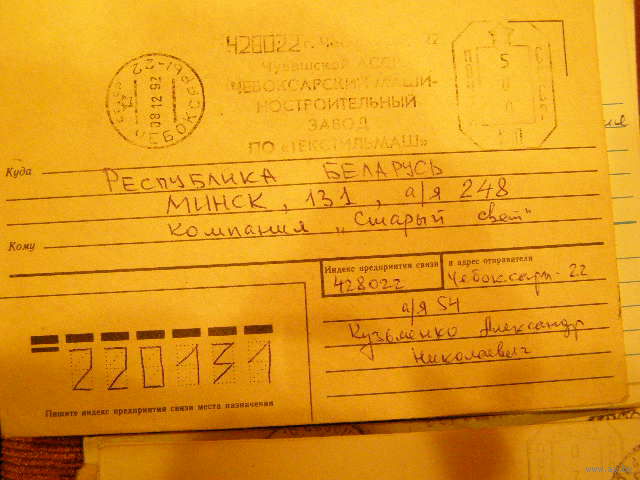 420022 г. 22
Чувашской АССР
ЧЕБОКСАРСКИЙ МАШИ-
НОСТРОИТЕЛЬНЫЙ
ЗАВОД
ПО «ТЕКСТИЛЬМАШ»
08 12 92
5
Куда
РЕСПУБЛИКА БЕЛАРУСЬ
МИНСК, 131, а/я 248
Компания „Старый свет“
Кому
Индекс предприятия связи и адрес отправителя
428022 Чебоксары-22
а/я 54
Кузьменко Александр
Николаевич
220131
Пишите индекс предприятия связи места назначения